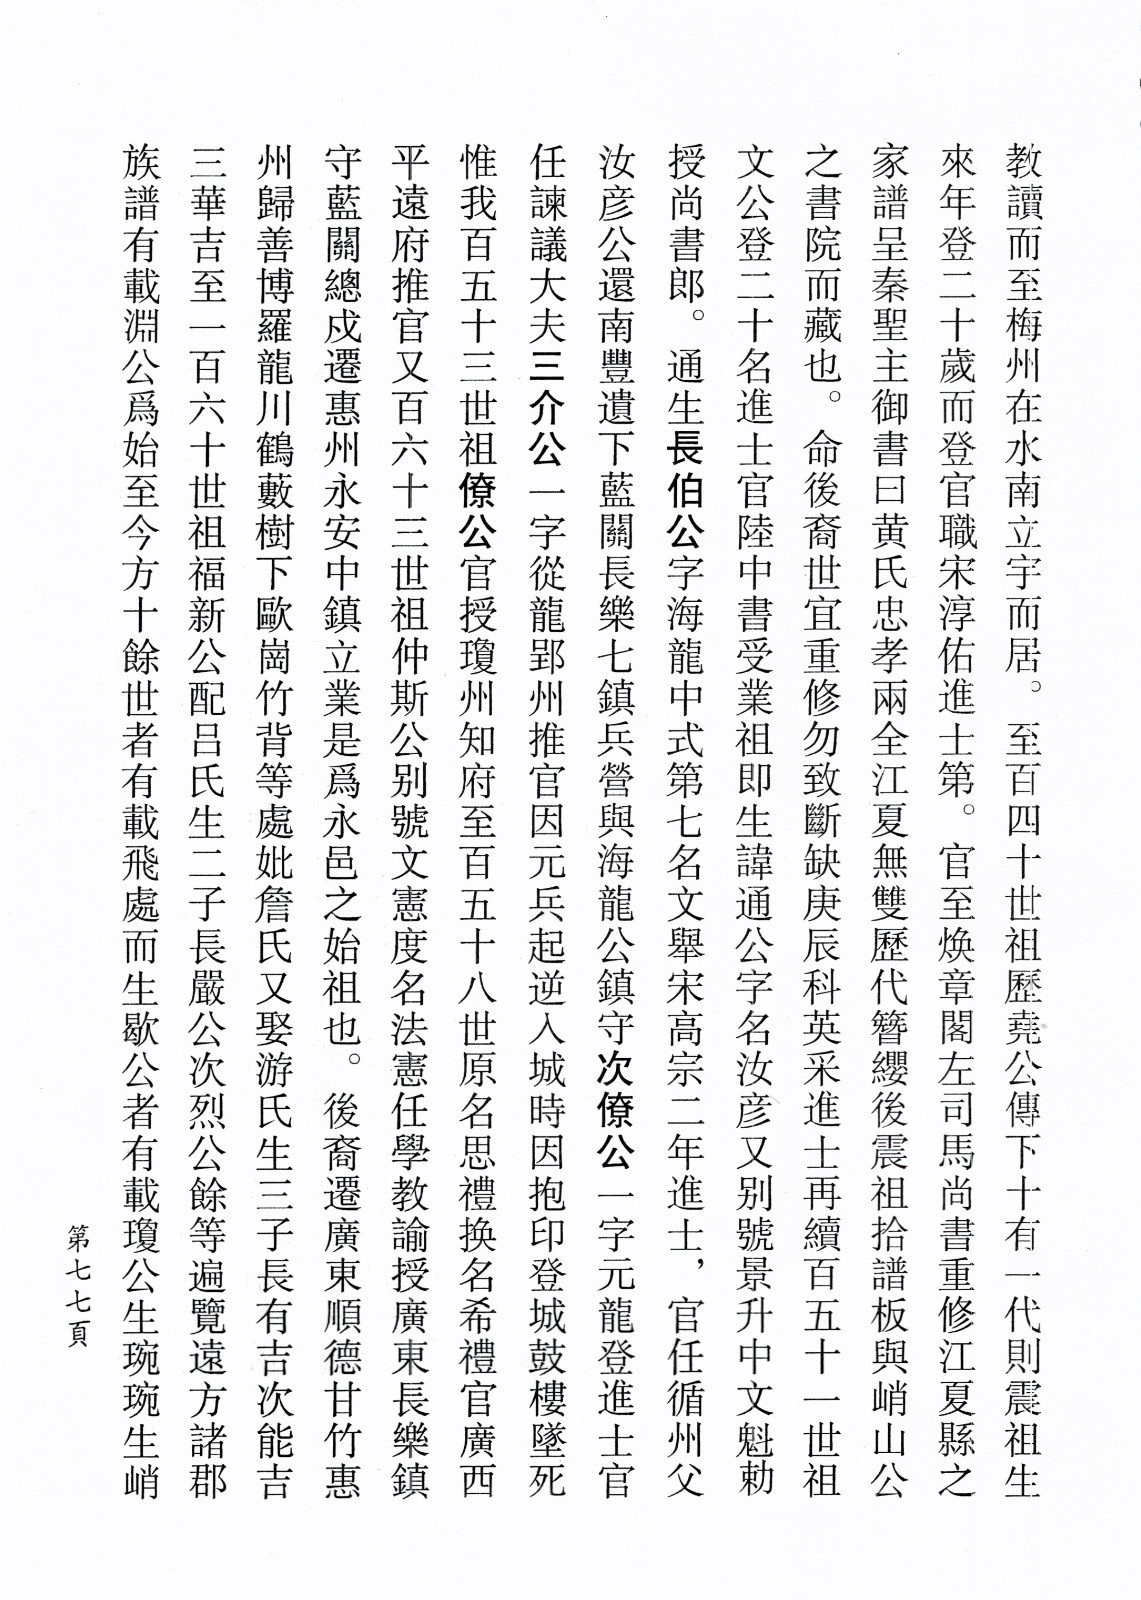 教讀而至梅州在水南立宇而居。至百四十世祖歷堯公傳下十有一代則震祖生
來年登二十歲而登官職宋淳佑進士第。官至煥章閣左司馬尚書重修江夏縣之
家譜呈秦聖主御書曰黄氏忠孝兩全江夏無雙歷代簪纓後震祖拾譜板與峭山公
之書院而藏也。命後裔世宜重修勿致斷缺庚辰科英采進士再續百五十一世祖
文公登二十名進士官陸中書受業祖即生諱通公字名汝彦又别號景升中文魁勅
授尚書郎。通生長伯公字海龍中式第七名文舉宋高宗二年進士，官任循州父
汝彦公還南豐遺下藍關長樂七鎮兵營與海龍公鎮守次僚公一字元龍登進士官
任諫議大夫三介公一字從龍郢州推官因元兵起逆入城時因抱印登城鼓樓墜死
惟我百五十三世祖僚公官授瓊州知府至百五十八世原名思禮换名希禮官廣西
平遠府推官又百六十三世祖仲斯公别號文憲度名法憲任學教諭授廣東長樂鎮
守藍關總戍遷惠州永安中鎮立業是爲永邑之始祖也。後裔遷廣東順德甘竹惠
州歸善博羅龍川鶴藪樹下歐崗竹背等處妣詹氏又娶游氏生三子長有吉次能吉
三華吉至一百六十世祖福新公配吕氏生二子長嚴公次烈公餘等遍覽遠方諸郡
族譜有載淵公爲始至今方十餘世者有載飛處而生歇公者有載瓊公生琬琬生峭
第七七頁